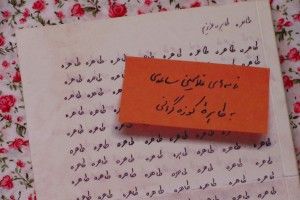 طاهره، طاهره عزیزم
طاهره طاهره طاهره طاهره طاهره طاهره طاهره طاهره
نامه‌های غلامحسین ساعدی
به طاهرهٔ کوزه‌گرانی
طاهره طاهره طاهره
طاهره طاهره طاهره
طاهره طاهره طاهره
طاهره طاهره طاهره
طاهره طاهره طاهره طاهره طاهره طاهره طاهره
طاهره طاهره طاهره طاهره طاهره طاهره طاهره
طاهره طاهره طاهره طاهره طاهره طاهره طاهره